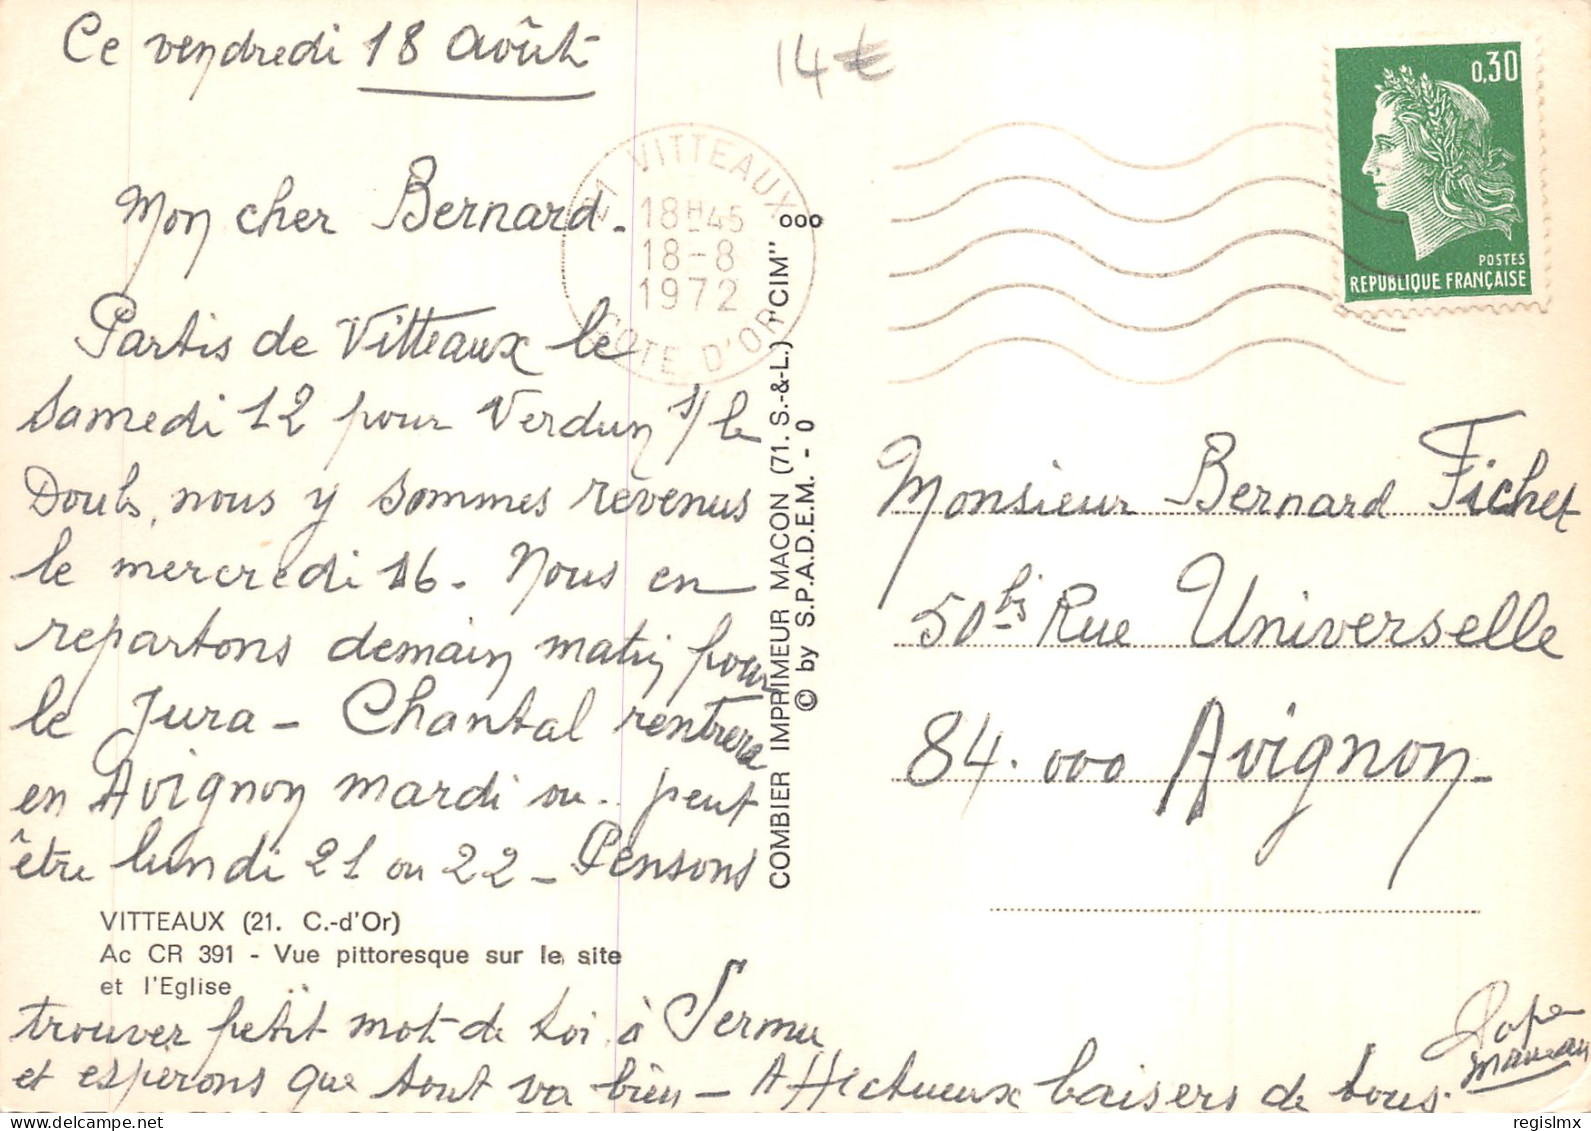 Ce vendredi 18 août
14€
Mon cher Bernard.
Partis de Vitteaux le
samedi 12 pour Verdun s/le
Doubs, nous y sommes revenus
le mercredi 16. Nous en
repartons demain matin pour
le Jura - Chantal rentrera
en Avignon mardi ou.. peut
être lundi 21 ou 22 - Pensons
VITTEAUX (21. C.-d'Or)
Ac CR 391 - Vue pittoresque sur le site
et l'Eglise
trouver petit mot de toi à Sermu
et espérons que tout va bien - Affectueux baisers de tous.
Papa
maman
21 VITTEAUX
18H45
18-8
1972
COTE D'OR
COMBIER IMPRIMEUR MACON (71. S.-&-L.) "CIM"
© by S.P.A.D.E.M. - 0
000
0,30
POSTES
REPUBLIQUE FRANÇAISE
Monsieur Bernard Fichet
50bis Rue Universelle
84.000 Avignon
regislmx